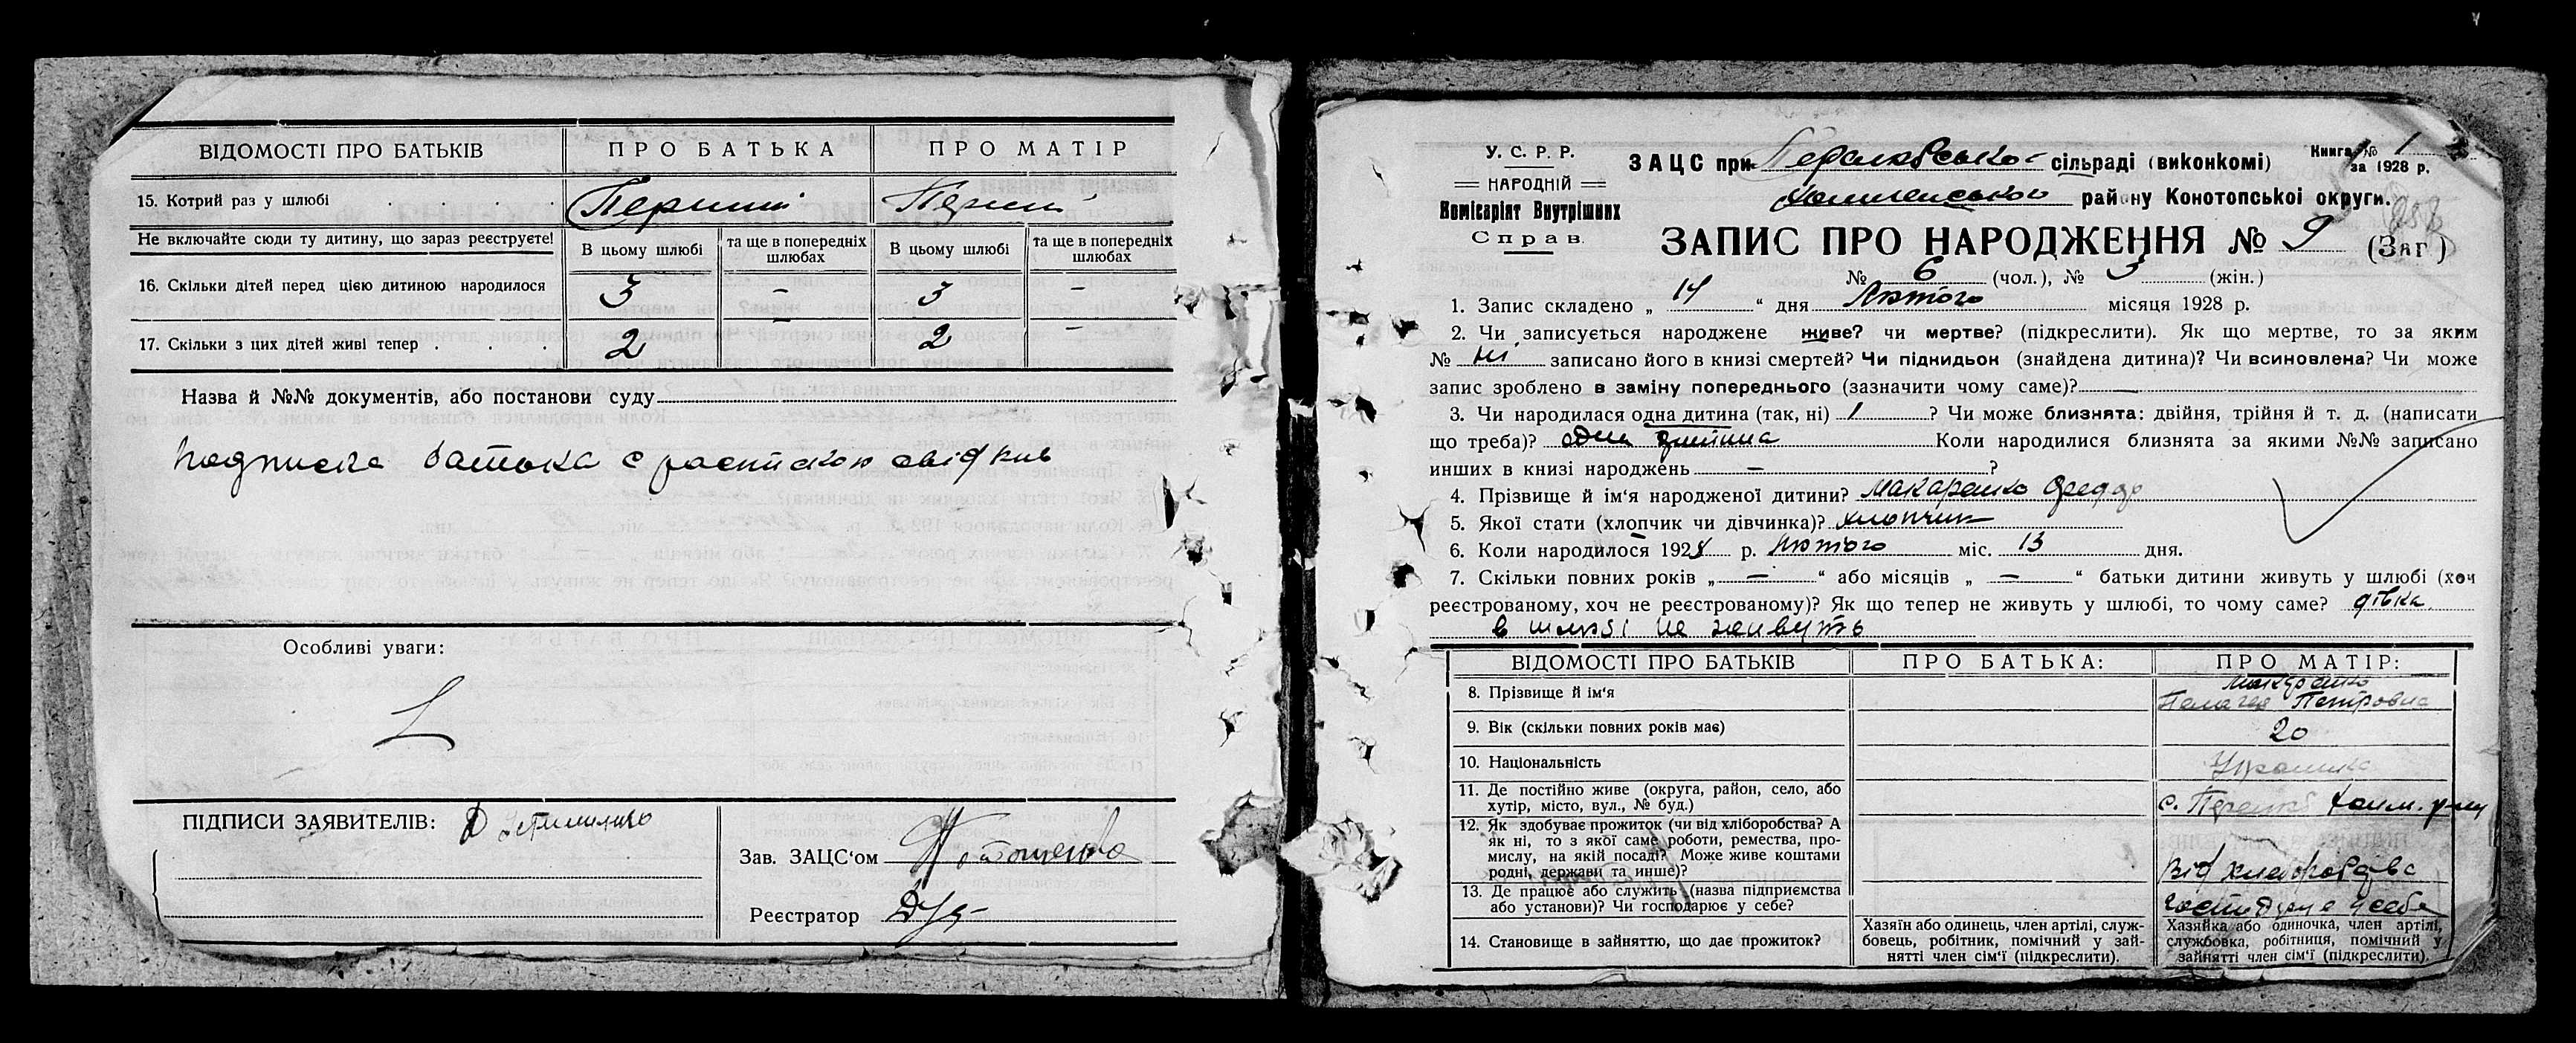 ВІДОМОСТІ ПРО БАТЬКІВ
ПРО БАТЬКА
ПРО МАТІР
15. Котрий раз у шлюбі . . . .
Перший
Перший
Не включайте сюди ту дитину, що зараз реєструєте!
В цьому шлюбі
та ще в попередніх шлюбах
В цьому шлюбі
та ще в попередніх шлюбах
16. Скільки дітей перед цією дитиною народилося
3 - 3 -
17. Скільки з цих дітей живі тепер . . .
2 - 2 -
Назва й №№ документів, або постанови суду
батька с
Особливі уваги:
ПІДПИСИ ЗАЯВИТЕЛІВ:
Зав. ЗАЦС'ом
Реєстратор
У. С. Р. Р.
НАРОДНІЙ
Комісаріят Внутрішніх
Справ.
ЗАЦС при сільраді (виконкомі)
Книга № 1
за 1928 р.
району Конотопської округи.
ЗАПИС ПРО НАРОДЖЕННЯ № 9 (Заг)
№ 6 (чол.), № 3 (жін.)
1. Запис складено „ 14 “ дня Лютого місяця 1928 р.
2. Чи записується народжене живе? чи мертве? (підкреслити). Як що мертве, то за яким
№ ні записано його в книзі смертей? Чи підкидьок (знайдена дитина)? Чи всиновлена? Чи може
запис зроблено в заміну попереднього (зазначити чому саме)? —
3. Чи народилася одна дитина (так, ні) 1 ? Чи може близнята: двійня, трійня й т. д. (написати
що треба)? одна дитина Коли народилися близнята за якими №№ записано
инших в книзі народжень — ?
4. Прізвище й ім'я народженої дитини? Макаренко Федор
5. Якої стати (хлопчик чи дівчинка)? хлопчик
6. Коли народилося 1928 р. Лютого міс. 13 дня.
7. Скільки повних років „ — “ або місяців „ — “ батьки дитини живуть у шлюбі (хоч
реєстрованому, хоч не реєстрованому)? Як що тепер не живуть у шлюбі, то чому саме? дівка
в шлюбі не живуть
ВІДОМОСТІ ПРО БАТЬКІВ
ПРО БАТЬКА:
ПРО МАТІР:
8. Прізвище й ім'я
Макаренко
Пелагея Петровна
9. Вік (скільки повних років має)
20
10. Національність
Українка
11. Де постійно живе (округа, район, село, або
хутір, місто, вул., № буд.)
с.
12. Як здобуває прожиток (чи від хліборобства? А
як ні, то з якої саме роботи, ремества, про-
мислу, на якій посаді? Може живе коштами
родні, держави та инше)?
Від хліборобства
13. Де працює або служить (назва підприємства
або установи)? Чи господарює у себе?
у себе
14. Становище в зайняттю, що дає прожиток?
Хазяїн або одинець, член артілі, служ-
бовець, робітник, помічний у зай-
нятті член сім'ї (підкреслити).
Хазяйка або одиночка, член артілі,
службовка, робітниця, помічний у
зайнятті член сім'ї (підкреслити).